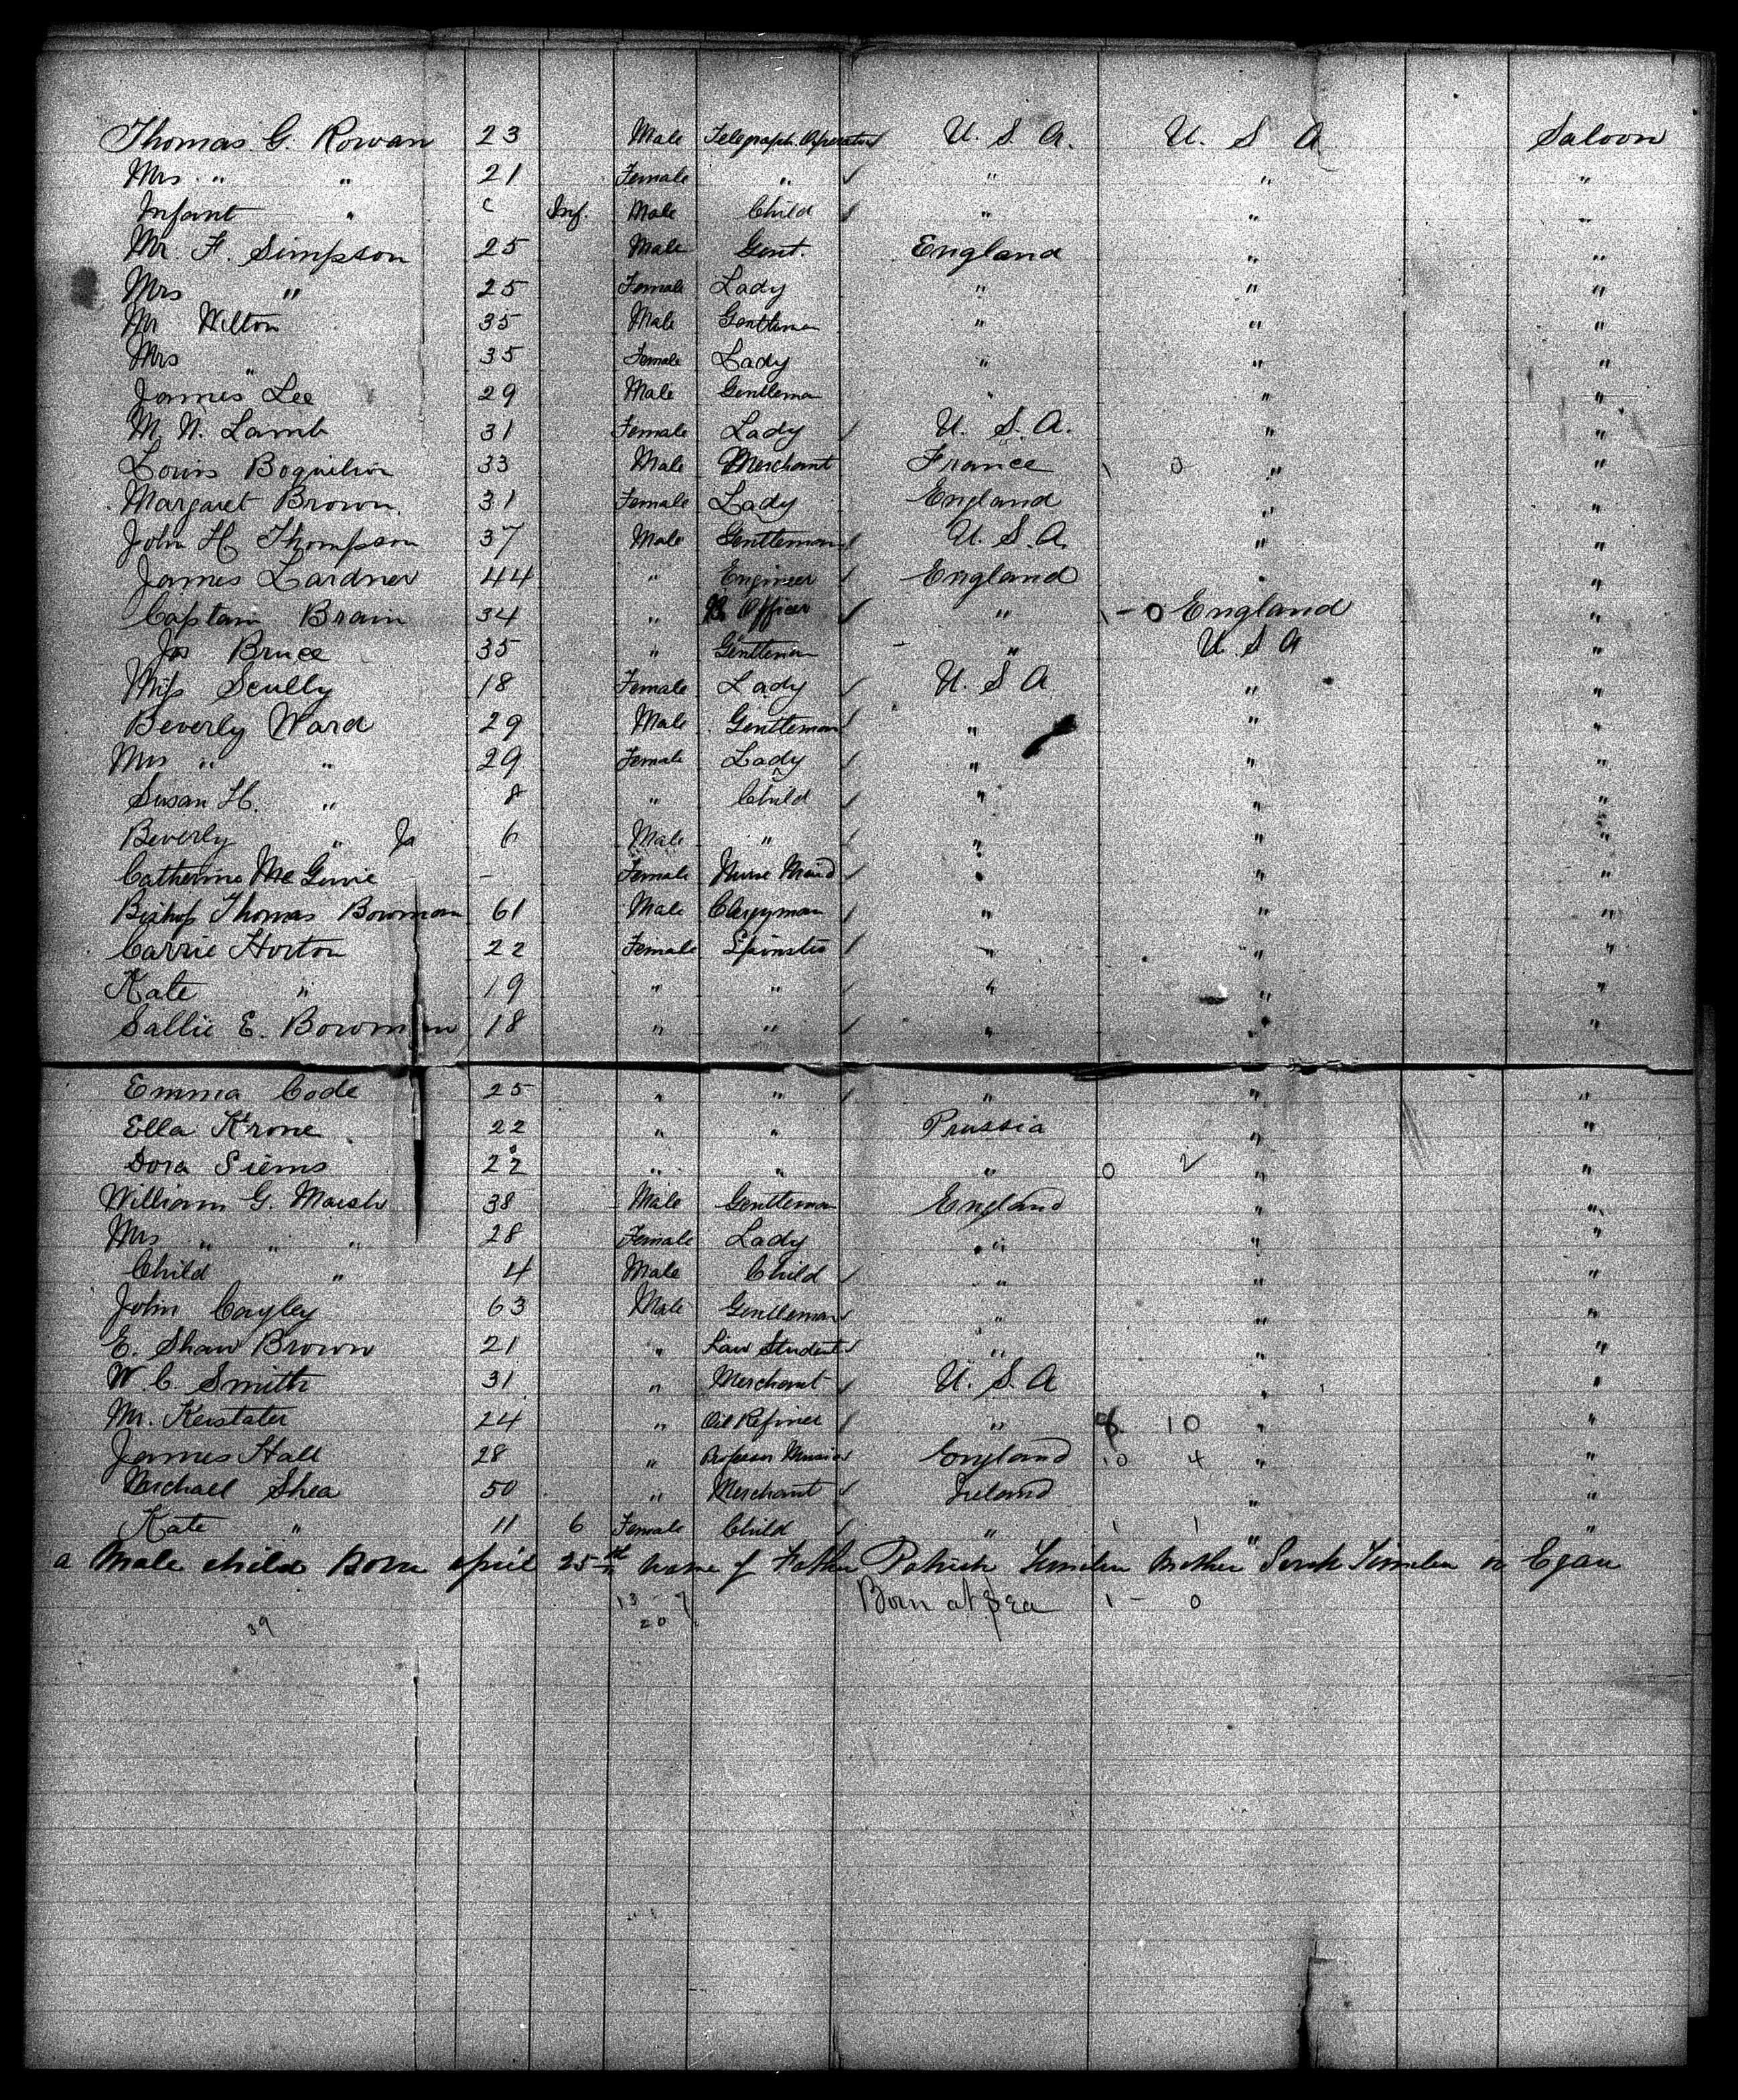 Thomas G. Rowan 23 Male Telegraph Operator U. S. A. U. S A Saloon
Mrs " " 21 Female " " " "
Infant " Inf. Male Child " " "
Mr. F. Simpson 25 Male Gent. England " "
Mrs " 25 Female Lady " " "
Mr Wilton 35 Male Gentleman " " "
Mrs " 35 Female Lady " " "
James Lee 29 Male Gentleman " " "
M. N. Lamb 31 Female Lady U. S. A. " "
Louis 33 Male Merchant France 0 " "
Margaret Brown 31 Female Lady England " "
John H Thompson 37 Male Gentleman U. S. A. " "
James Lardner 44 " Engineer England " "
Captain Brain 34 " Officer " - 0 England "
Jas Bruce 35 " Gentleman " U. S A "
Miss Scully 18 Female Lady U. S A " "
Beverly Ward 29 Male Gentleman " " "
Mrs " " 29 Female Lady " " "
Susan H. " 8 " Child " " "
Beverly " Jr 6 Male " " " "
Catherine - Female Nurse Maid " " "
Bishop Thomas Bowman 61 Male Clergyman " " "
Carrie Horton 22 Female Spinster " " "
Kate " 19 " " " " "
Sallie E. Bowman 18 " " " " "
Emma Code 25 " " " " "
Ella Krone 22 " " Prussia " "
Dora Siems 22 " " " 0 2 " "
William G. Marsh 38 Male Gentleman England " "
Mrs " " " 28 Female Lady " " "
Child " 4 Male Child " " "
John Cayley 63 Male Gentleman " " "
E. Shaw Brown 21 " Law Student " " "
W. C. Smith 31 " Merchant U. S. A " "
M. 24 " Oil Refiner " 10 " "
James Hall 28 " Professor Music England 10 4 " "
Michael Shea 50 " Merchant Ireland " "
Kate " 11 6 Female Child " 1 1 " "
a Male child Born april 25th name of Father Patrick Mother or Egan
13 - 7 Born at Sea 1 - 0
39 20